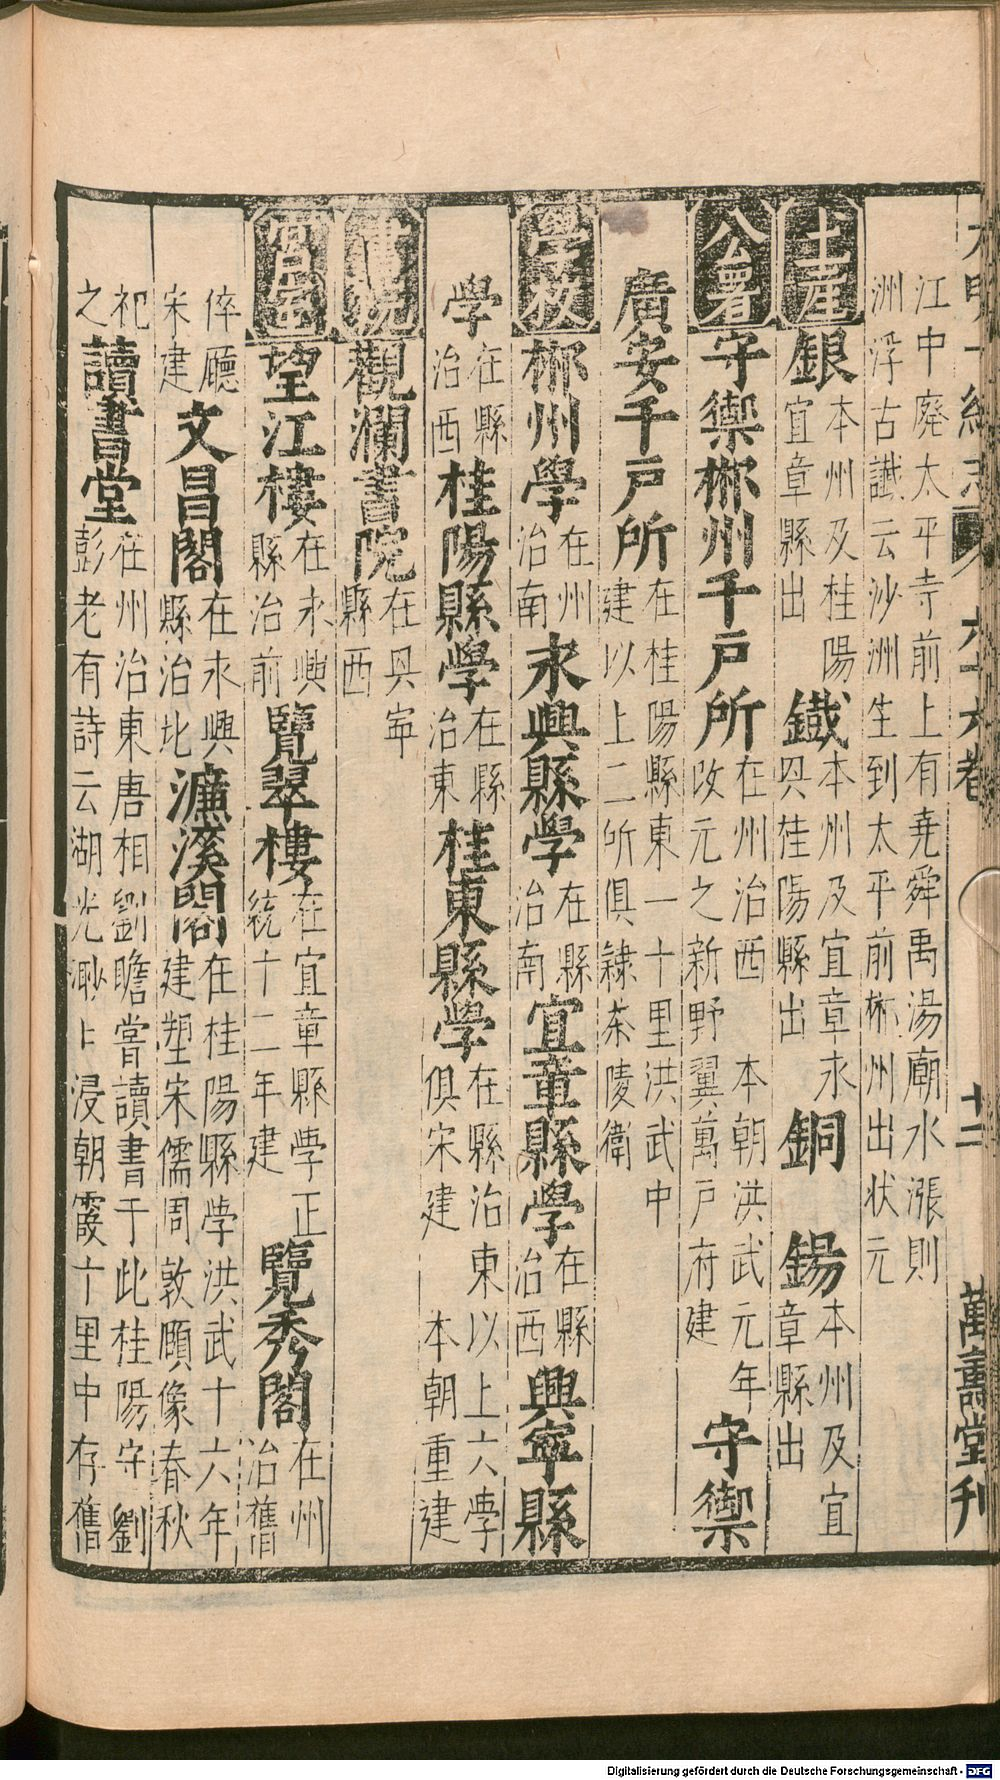 大明一統志 六十六卷 十二 萬壽堂刊
江中廢太平寺前上有堯舜禹湯廟水漲則
洲浮古讖云沙洲生到太平前郴州出状元
土産 銀 本州及桂陽
宜章縣出 鐵 本州及宜章永
興桂陽縣出 銅 錫 本州及宜
章縣出
公署 守禦郴州千戸所 在州治西 本朝洪武元年
改元之新野翼萬戸府建 守禦
廣安千戸所 在桂陽縣東一十里洪武中
建以上二所俱隸茶陵衛
學校 郴州學 在州
治南 永興縣學 在縣
治南 宜章縣學 在縣
治西 興寧縣
學 在縣
治西 桂陽縣學 在縣
治東 桂東縣學 在縣治東以上六學
俱宋建 本朝重建
書院 觀瀾書院 在興寧
縣西
宮室 望江樓 在永興
縣治前 覽翠樓 在宜章縣學正
統十二年建 覽秀閣 在州
治舊
倅廳
宋建 文昌閣 在永興
縣治北 濂溪閣 在桂陽縣學洪武十六年
建塑宋儒周敦頤像春秋
祀
之 讀書堂 在州治東唐相劉瞻嘗讀書于此桂陽守劉
彭老有詩云湖光渺上浸朝霞十里中存舊
Digitalisierung gefördert durch die Deutsche Forschungsgemeinschaft - DFG